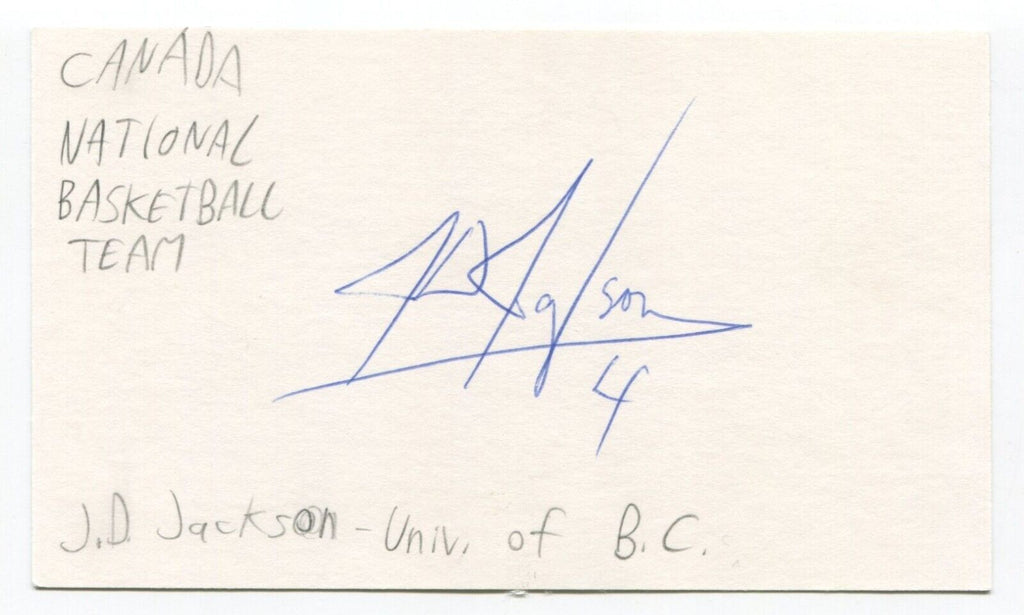 CANADA
NATIONAL
BASKETBALL
TEAM
JD Jackson
4
J.D. Jackson - Univ. of B.C.